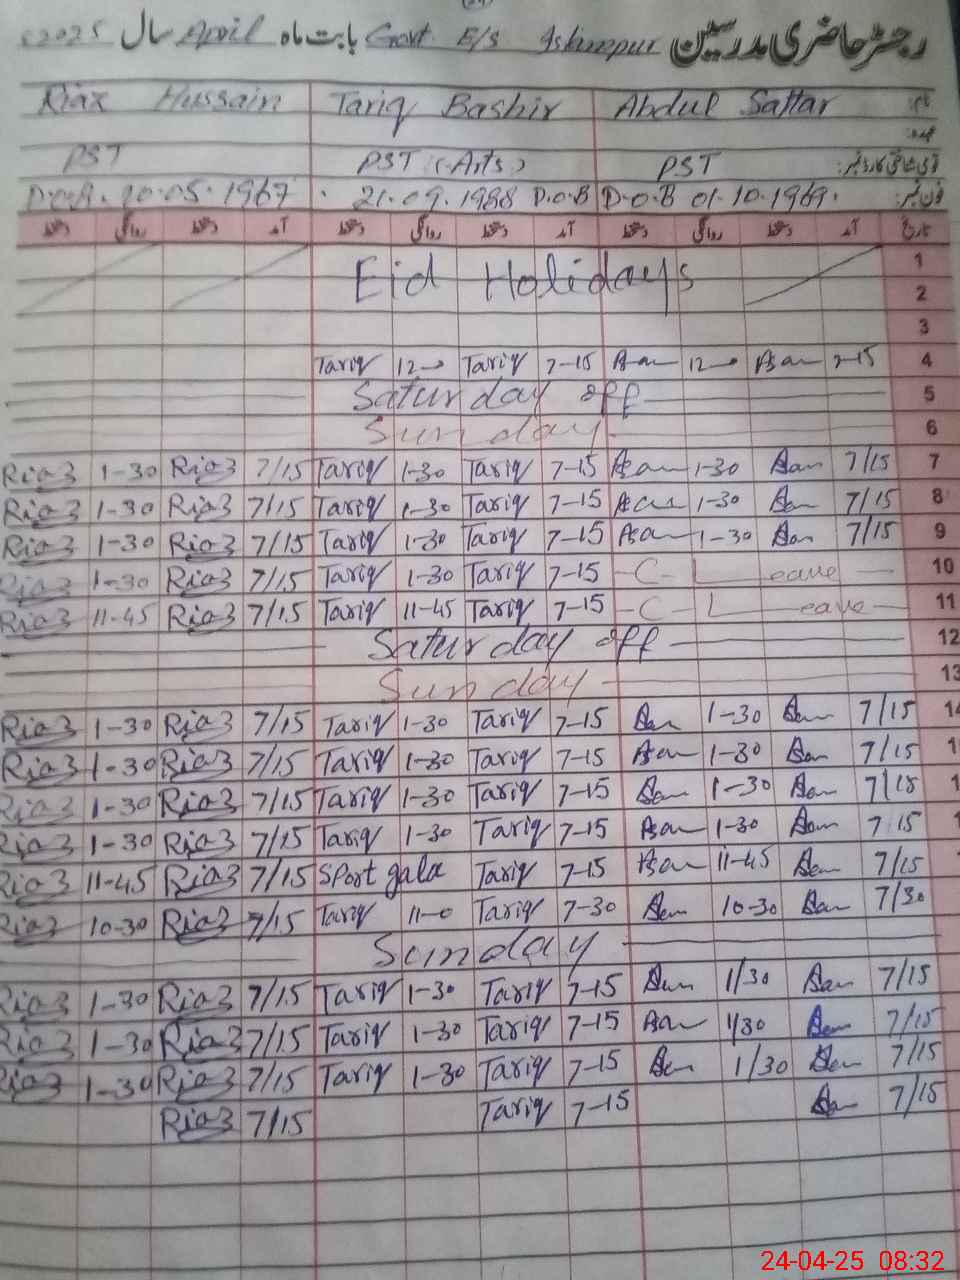 رجسٹر حاضری مدرسین Govt E/S بابت ماہ April سال 2025
نام Abdul Sattar Tariq Bashir Riaz Hussain
عہدہ
PST PST (Arts) PST
فون نمبر: D.O.B 01.10.1969. D.O.B 21.09.1988 20.05.1967
تاریخ آمد دستخط روانگی دستخط آمد دستخط روانگی دستخط آمد دستخط روانگی دستخط
1 Eid Holidays
2
3
Tariq 12 Tariq 7-15 12 7-15 4
Saturday off 5
Sunday 6
Riaz 1-30 Riaz 7/15 Tariq 1-30 Tariq 7-15 1-30 7/15 7
Riaz 1-30 Riaz 7/15 Tariq 1-30 Tariq 7-15 1-30 7/15 8
Riaz 1-30 Riaz 7/15 Tariq 1-30 Tariq 7-15 1-30 7/15 9
Riaz 1-30 Riaz 7/15 Tariq 1-30 Tariq 7-15 C-Leave 10
Riaz 11-45 Riaz 7/15 Tariq 11-45 Tariq 7-15 C-Leave 11
Saturday off 12
Sunday 13
Riaz 1-30 Riaz 7/15 Tariq 1-30 Tariq 7-15 1-30 7/15
Riaz 1-30 Riaz 7/15 Tariq 1-30 Tariq 7-15 1-30 7/15
Riaz 1-30 Riaz 7/15 Tariq 1-30 Tariq 7-15 1-30 7/15
Riaz 1-30 Riaz 7/15 Tariq 1-30 Tariq 7-15 1-30 7 15
Riaz 11-45 Riaz 7/15 Sport gala Tariq 7-15 11-45 7/15
Riaz 10-30 Riaz 7/15 Tariq 11-0 Tariq 7-30 10-30 7/30
Sunday
Riaz 1-30 Riaz 7/15 Tariq 1-30 Tariq 7-15 1/30 7/15
Riaz 1-30 Riaz 7/15 Tariq 1-30 Tariq 7-15 1/30 7/15
Riaz 1-30 Riaz 7/15 Tariq 1-30 Tariq 7-15 1/30 7/15
Riaz 7/15 Tariq 7-15 7/15
24-04-25 08:32